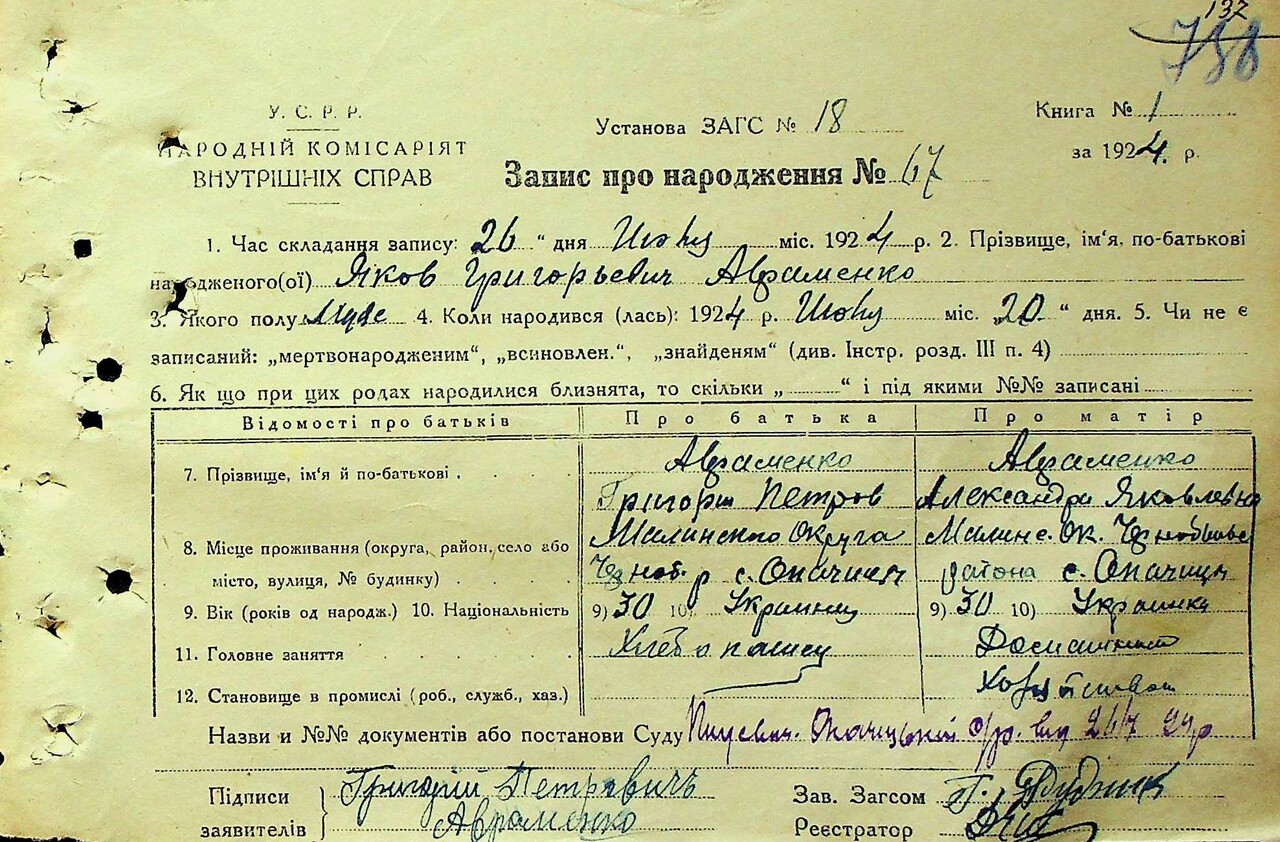 137
788
У. С. Р. Р.
НАРОДНІЙ КОМІСАРІЯТ
ВНУТРІШНІХ СПРАВ
Установа ЗАГС № 18
Книга № 1
за 1924. р.
Запис про народження № 67
1. Час складання запису: 26 " дня Июля міс. 1924 р. 2. Прізвище, ім'я, по-батькові
народженого(ої) Яков Григорьевич Авраменко
3. Якого полу Муже 4. Коли народився (лась): 1924 р. Июля міс. „20 " дня. 5. Чи не є
записаний: „мертвонародженим", „всиновлен.", „знайденям" (див. Інстр. розд. III п. 4)
6. Як що при цих родах народилися близнята, то скільки „ " і під якими №№ записані
Відомості про батьків Про батька Про матір
7. Прізвище, ім'я й по-батькові . . . Авраменко Авраменко
Григорий Петров Александра Яковлевна
8. Місце проживання (округа, район, село або Малинского Округа Малинс. Ок. Чернобыльс
місто, вулиця, № будинку) . . . Черноб. р с. Опачичи района с. Опачичи
9. Вік (років од народж.) 10. Національність 9) 30 10) Украинец 9) 30 10) Украинка
11. Головне заняття Хлебопашец Домашним
12. Становище в промислі (роб., служб., хаз.) Хозяйством
Назви и №№ документів або постанови Суду Опачицькій с/р. від 26/7 24р
Підписи Григорій Петровичъ Зав. Загсом Г. Дудник
заявителів Авраменко Реєстратор